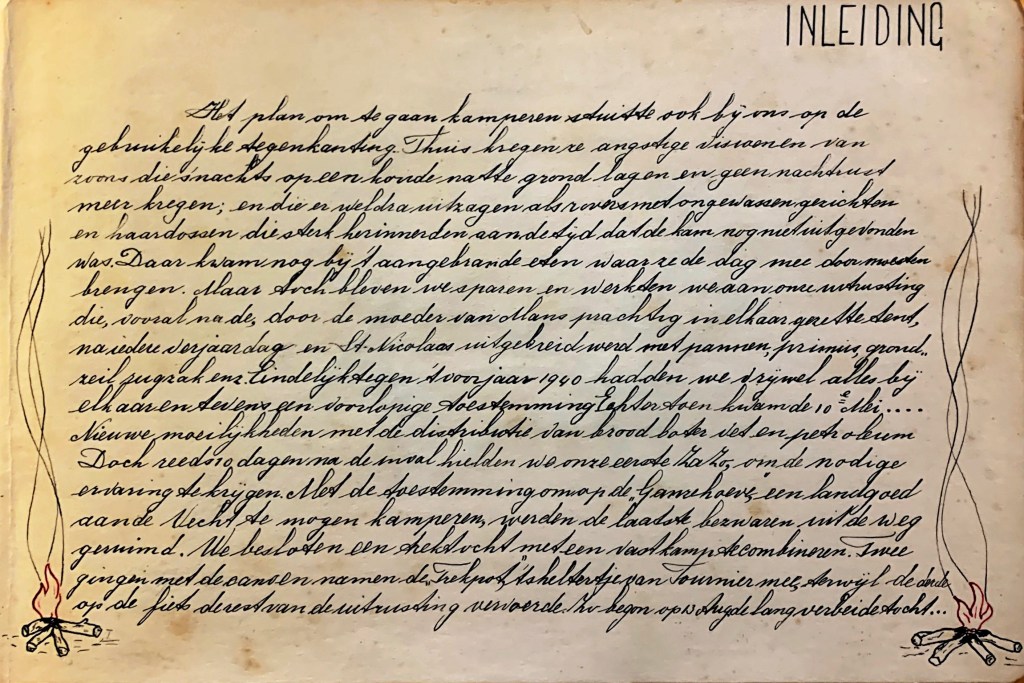 INLEIDING
Het plan om te gaan kamperen stuitte ook bij ons op de
gebruikelijke tegenkanting. Thuis kregen ze angstige visioenen van
zoons die 's nachts op een koude natte grond lagen en geen nachtrust
meer kregen; en die er weldra uitzagen als rovers met ongewassen gezichten
en haardossen die sterk herinnerden aan de tijd dat de kam nog niet uitgevonden
was. Daar kwam nog bij 't aangebrande eten waar ze de dag mee door moesten
brengen. Maar toch bleven we sparen en werkten we aan onze uitrusting
die, vooral na de, door de moeder van Mans prachtig in elkaar gezette tent,
na iedere verjaardag en St. Nicolaas uitgebreid werd met pannen, primus, grond-
zeil, rugzak enz. Eindelijk tegen 't voorjaar 1940 hadden we vrijwel alles bij
elkaar en tevens een voorlopige toestemming. Echter toen kwam de 10e Mei,....
Nieuwe moeilijkheden met de distributie van brood boter vet en petroleum
Doch reeds 10 dagen na de inval hielden we onze eerste ZaZo, om de nodige
ervaring te krijgen. Met de toestemming om op de „Ganzehoeve" een landgoed
aan de Vecht, te mogen kamperen, werden de laatste bezwaren uit de weg
geruimd. We besloten een trektocht met een vast kamp te combineren. Twee
gingen met de canoe en namen de „Trekpot", 't sheltertje van Tournier mee, terwijl de derde
op de fiets de rest van de uitrusting vervoerde. Zo begon op 13 Aug de lang verbeide tocht...